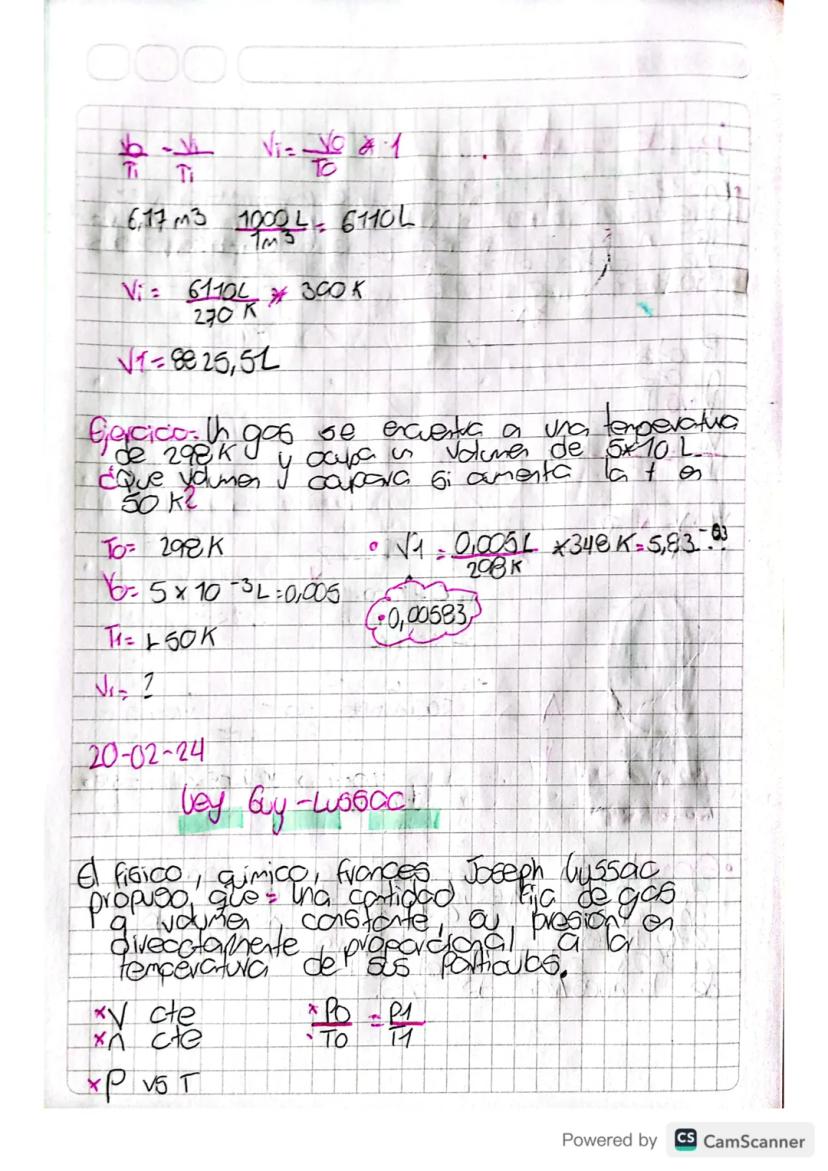 V0/T1 = V1/T1 V1 = V0/T0 * 1
6,17 m3 1000 L/1m3 = 6110 L
V1 = 6110L/270 K * 300 K
V1 = 8825,5L
Ejercicio: Un gas se encuentra a una temperatura
de 298K y ocupa un volumen de 5x10 L.
¿Que volumen y ocupara si aumenta la t en
50 K?
T0= 298K • V1 = 0,005L/298K *348 K = 5,83 -03
V0= 5 x 10 -3 L = 0,005 •0,00583
T1= +50K
V1= ?
20-02-24
Ley Guy-Lussac
El fisico, quimico, frances Joseph Lyssac
propuso, que = Una cantidad fija de gas
a volumen constante, su presión en
direcctamente proporcional a la
temperatura de sus particulas.
*V cte * P0/T0 = P1/T1
*n cte
*P vs T
Powered by CS CamScanner